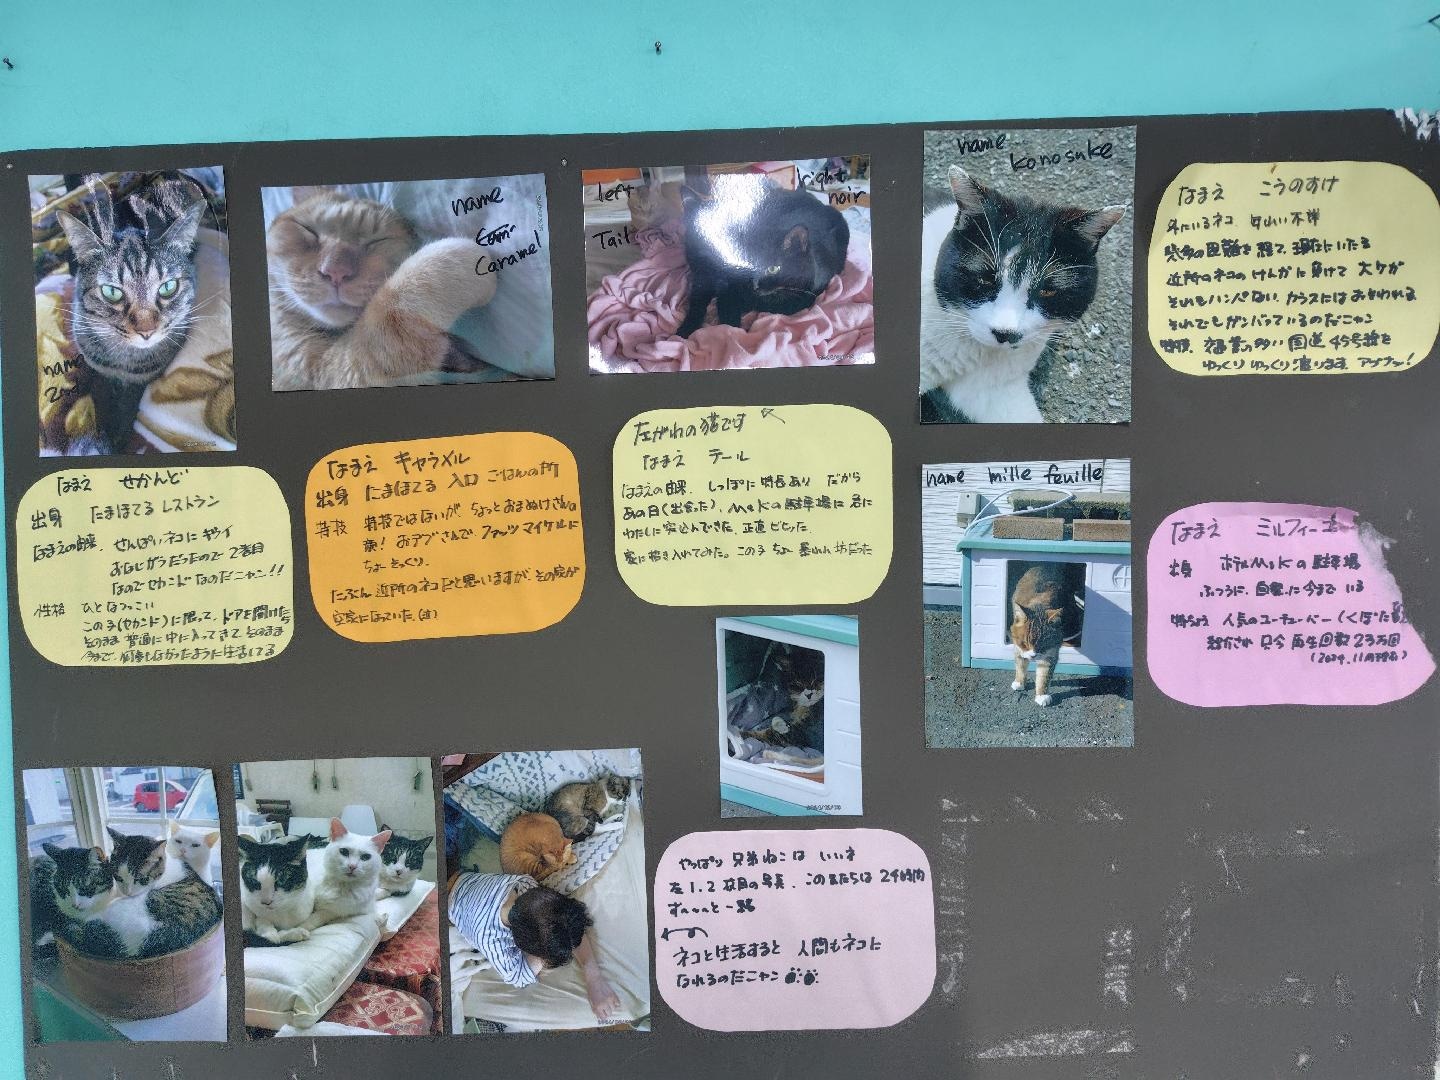 name
2nd
name
Caramel
left
Tail
right
noir
name
konosuke
なまえ こうのすけ
外にいるネコ、年れい不詳
数多の困難を経て、現在にいたる
近所のネコのけんかに負けて 大ケガ
それもハンパない、カラスにはおそわれる
それでもガンバっているのだニャン
特技、交通量の多い国道45号線を
ゆっくりゆっくり渡ります。アブナッ!
なまえ せかんど
出身 たまほてる レストラン
なまえの由来、せんぱいネコに
おなじがらだったので 2番目
なのでセカンドなのだニャン!!
性格 ひとなつっこい
この子(セカンド)に限って、ドアを開けたら
そのまま 普通に中に入ってきて、そのまま
今まで、何事もなかったように生活してる
なまえ キャラメル
出身 たまほてる 入口 ごはんの所
特技 特技ではないが ちょっとおまぬけさんの
顔! おデブさんで、ファッツマイケルに
ちょーそっくり、
たぶん 近所のネコだと思いますが、その家が
空家になっていた
左がわの猫です
なまえ テール
なまえの由来、しっぽに特長あり だから
あの日(出会った)、MoKの駐車場に
わたしに突込んできた、正直ビビった
家に招き入れてみた。この子 ちょー暴れん坊だった
name mille feuille
なまえ ミルフィーユ
出身 ホテルMoKの駐車場
ふつうに、自然に今までいる
特ちょう 人気のユーチューバー
只今 再生回数 23万回
(2024.11月現在)
やっぱり 兄弟ねこは いいネ
左1.2枚目の写真、この子たちは24時間
ずーーっと一緒
ネコと生活すると 人間もネコに
なれるのだニャン